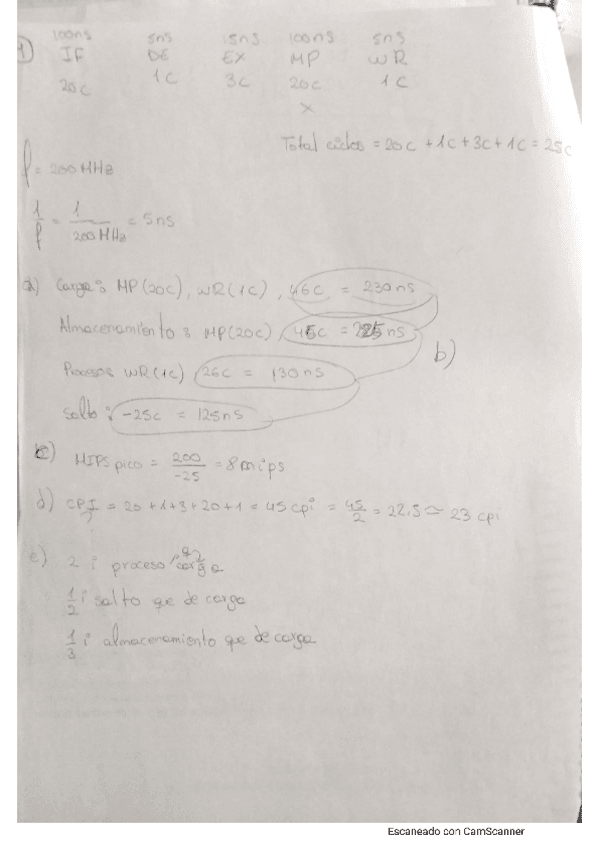 1) 100ns 5ns 15ns 100ns 5ns
IF DE EX MP WR
20c 1c 3c 20c 1c
x
Total ciclos = 20c + 1c + 3c + 1c = 25c
f = 200 MHz
1/f = 1/200 MHz = 5ns
a) Carga: MP(20c), WR(1c), 46c = 230ns
Almacenamiento: MP(20c), 45c = 225ns
b)
Procesos WR(1c) 26c = 130ns
Salto: -25c = 125ns
c) MIPS pico = 200/-25 = 8 mips
d) CPI = 20+1+3+20+1 = 45 cpi = 45/2 = 22,5 ≃ 23 cpi
?
e) 2 i proceso / carga
1/2 i salto que de carga
1/3 i almacenamiento que de carga
Escaneado con CamScanner